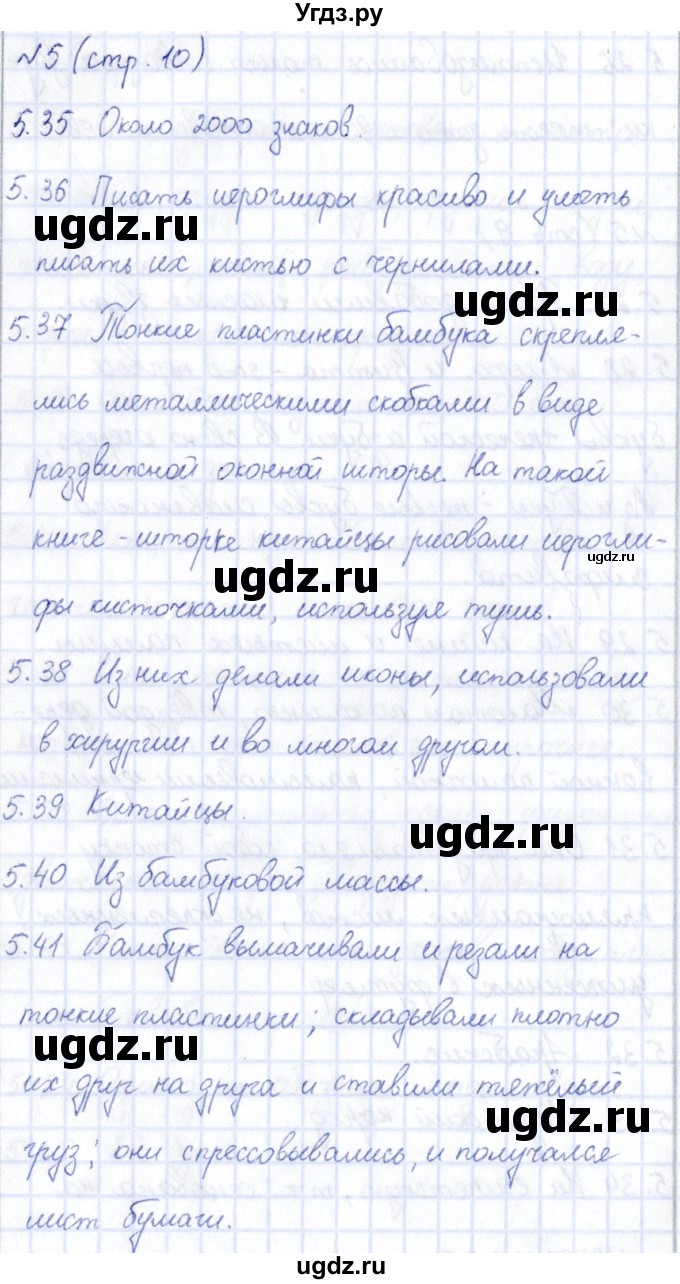 Угдз.ру
№5 (стр. 10)
5.35 Около 2000 знаков.
5.36 Писать иероглифы красиво и уметь
ugdz.ru
писать их кистью с чернилами.
ugdz.ru
5.37 Тонкие пластинки бамбука скрепля-
лись металлическими скобками в виде
раздвижной оконной шторы. На такой
книге-шторке китайцы рисовали иерогли-
ugdz.ru
ugdz.ru
фы кисточками, используя тушь.
5.38 Из них делали иконы, использовали
в хирургии и во многом другом.
5.39 Китайцы.
ugdz.ru
5.40 Из бамбуковой массы.
5.41 Бамбук вымачивали и резали на
тонкие пластинки; складывали плотно
ugdz.ru
их друг на друга и ставили тяжёлый
ugdz.ru
груз; они спрессовывались, и получался
лист бумаги.
ugdz.ru